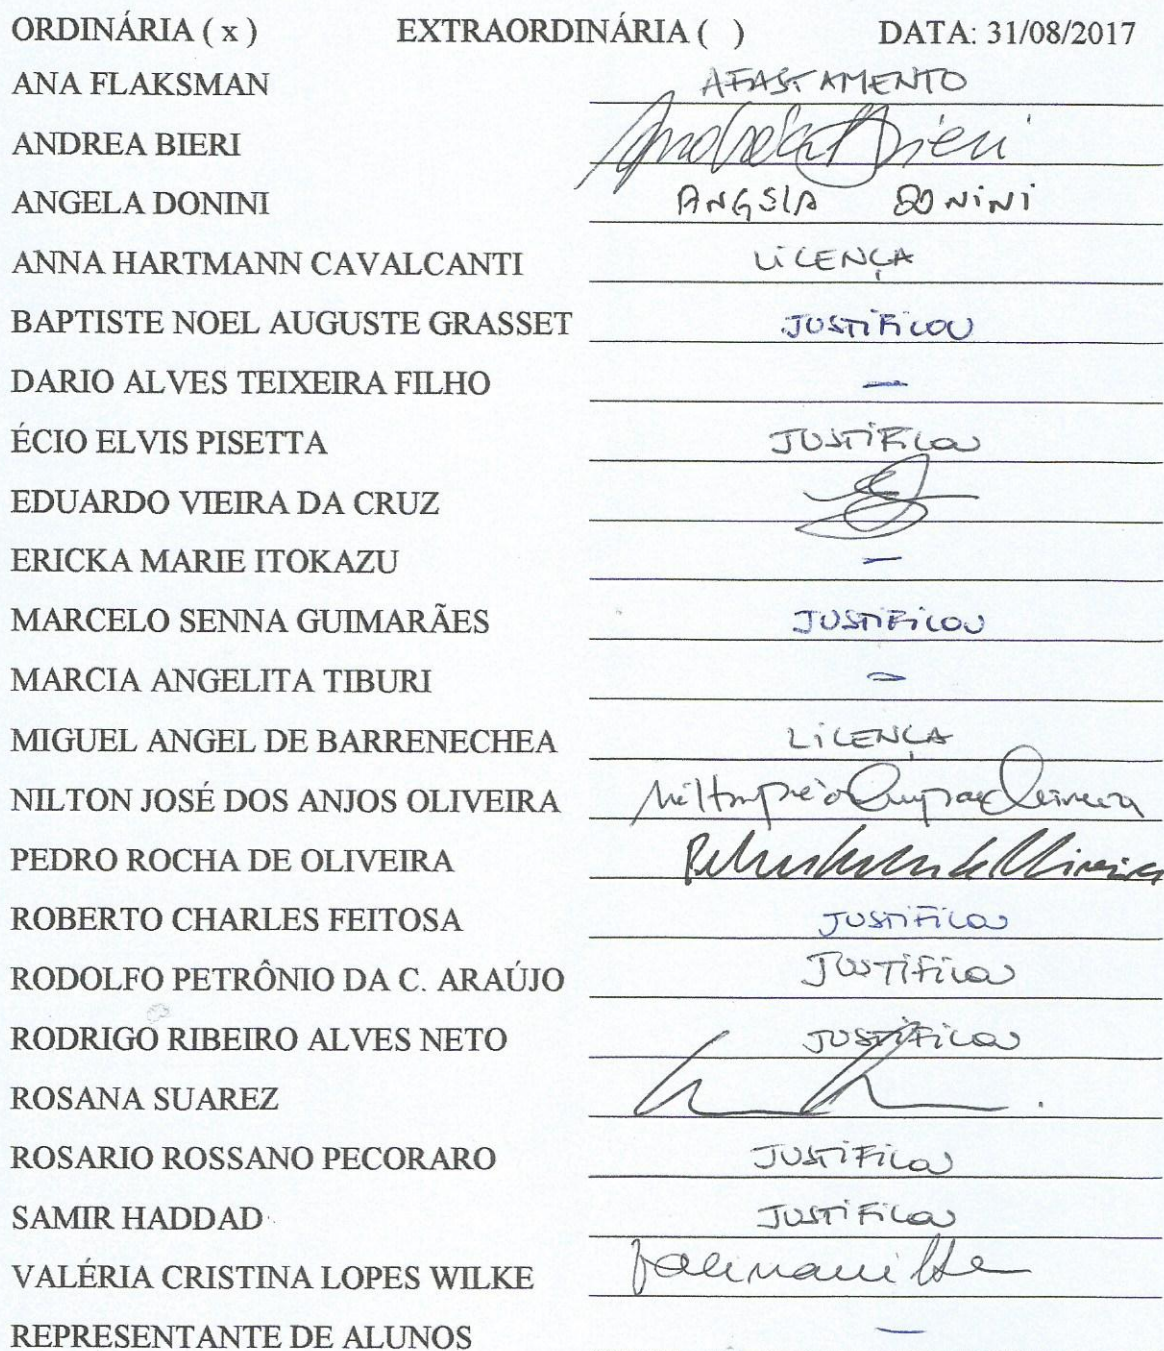 ORDINÁRIA ( x ) EXTRAORDINÁRIA ( ) DATA: 31/08/2017
ANA FLAKSMAN AFASTAMENTO
ANDREA BIERI Andrea Bieri
ANGELA DONINI ANGELA DONINI
ANNA HARTMANN CAVALCANTI LICENÇA
BAPTISTE NOEL AUGUSTE GRASSET JUSTIFICOU
DARIO ALVES TEIXEIRA FILHO —
ÉCIO ELVIS PISETTA JUSTIFICOU
EDUARDO VIEIRA DA CRUZ
ERICKA MARIE ITOKAZU —
MARCELO SENNA GUIMARÃES JUSTIFICOU
MARCIA ANGELITA TIBURI —
MIGUEL ANGEL DE BARRENECHEA LICENÇA
NILTON JOSÉ DOS ANJOS OLIVEIRA
PEDRO ROCHA DE OLIVEIRA
ROBERTO CHARLES FEITOSA JUSTIFICOU
RODOLFO PETRÔNIO DA C. ARAÚJO JUSTIFICOU
RODRIGO RIBEIRO ALVES NETO JUSTIFICOU
ROSANA SUAREZ
ROSARIO ROSSANO PECORARO JUSTIFICOU
SAMIR HADDAD JUSTIFICOU
VALÉRIA CRISTINA LOPES WILKE
REPRESENTANTE DE ALUNOS —